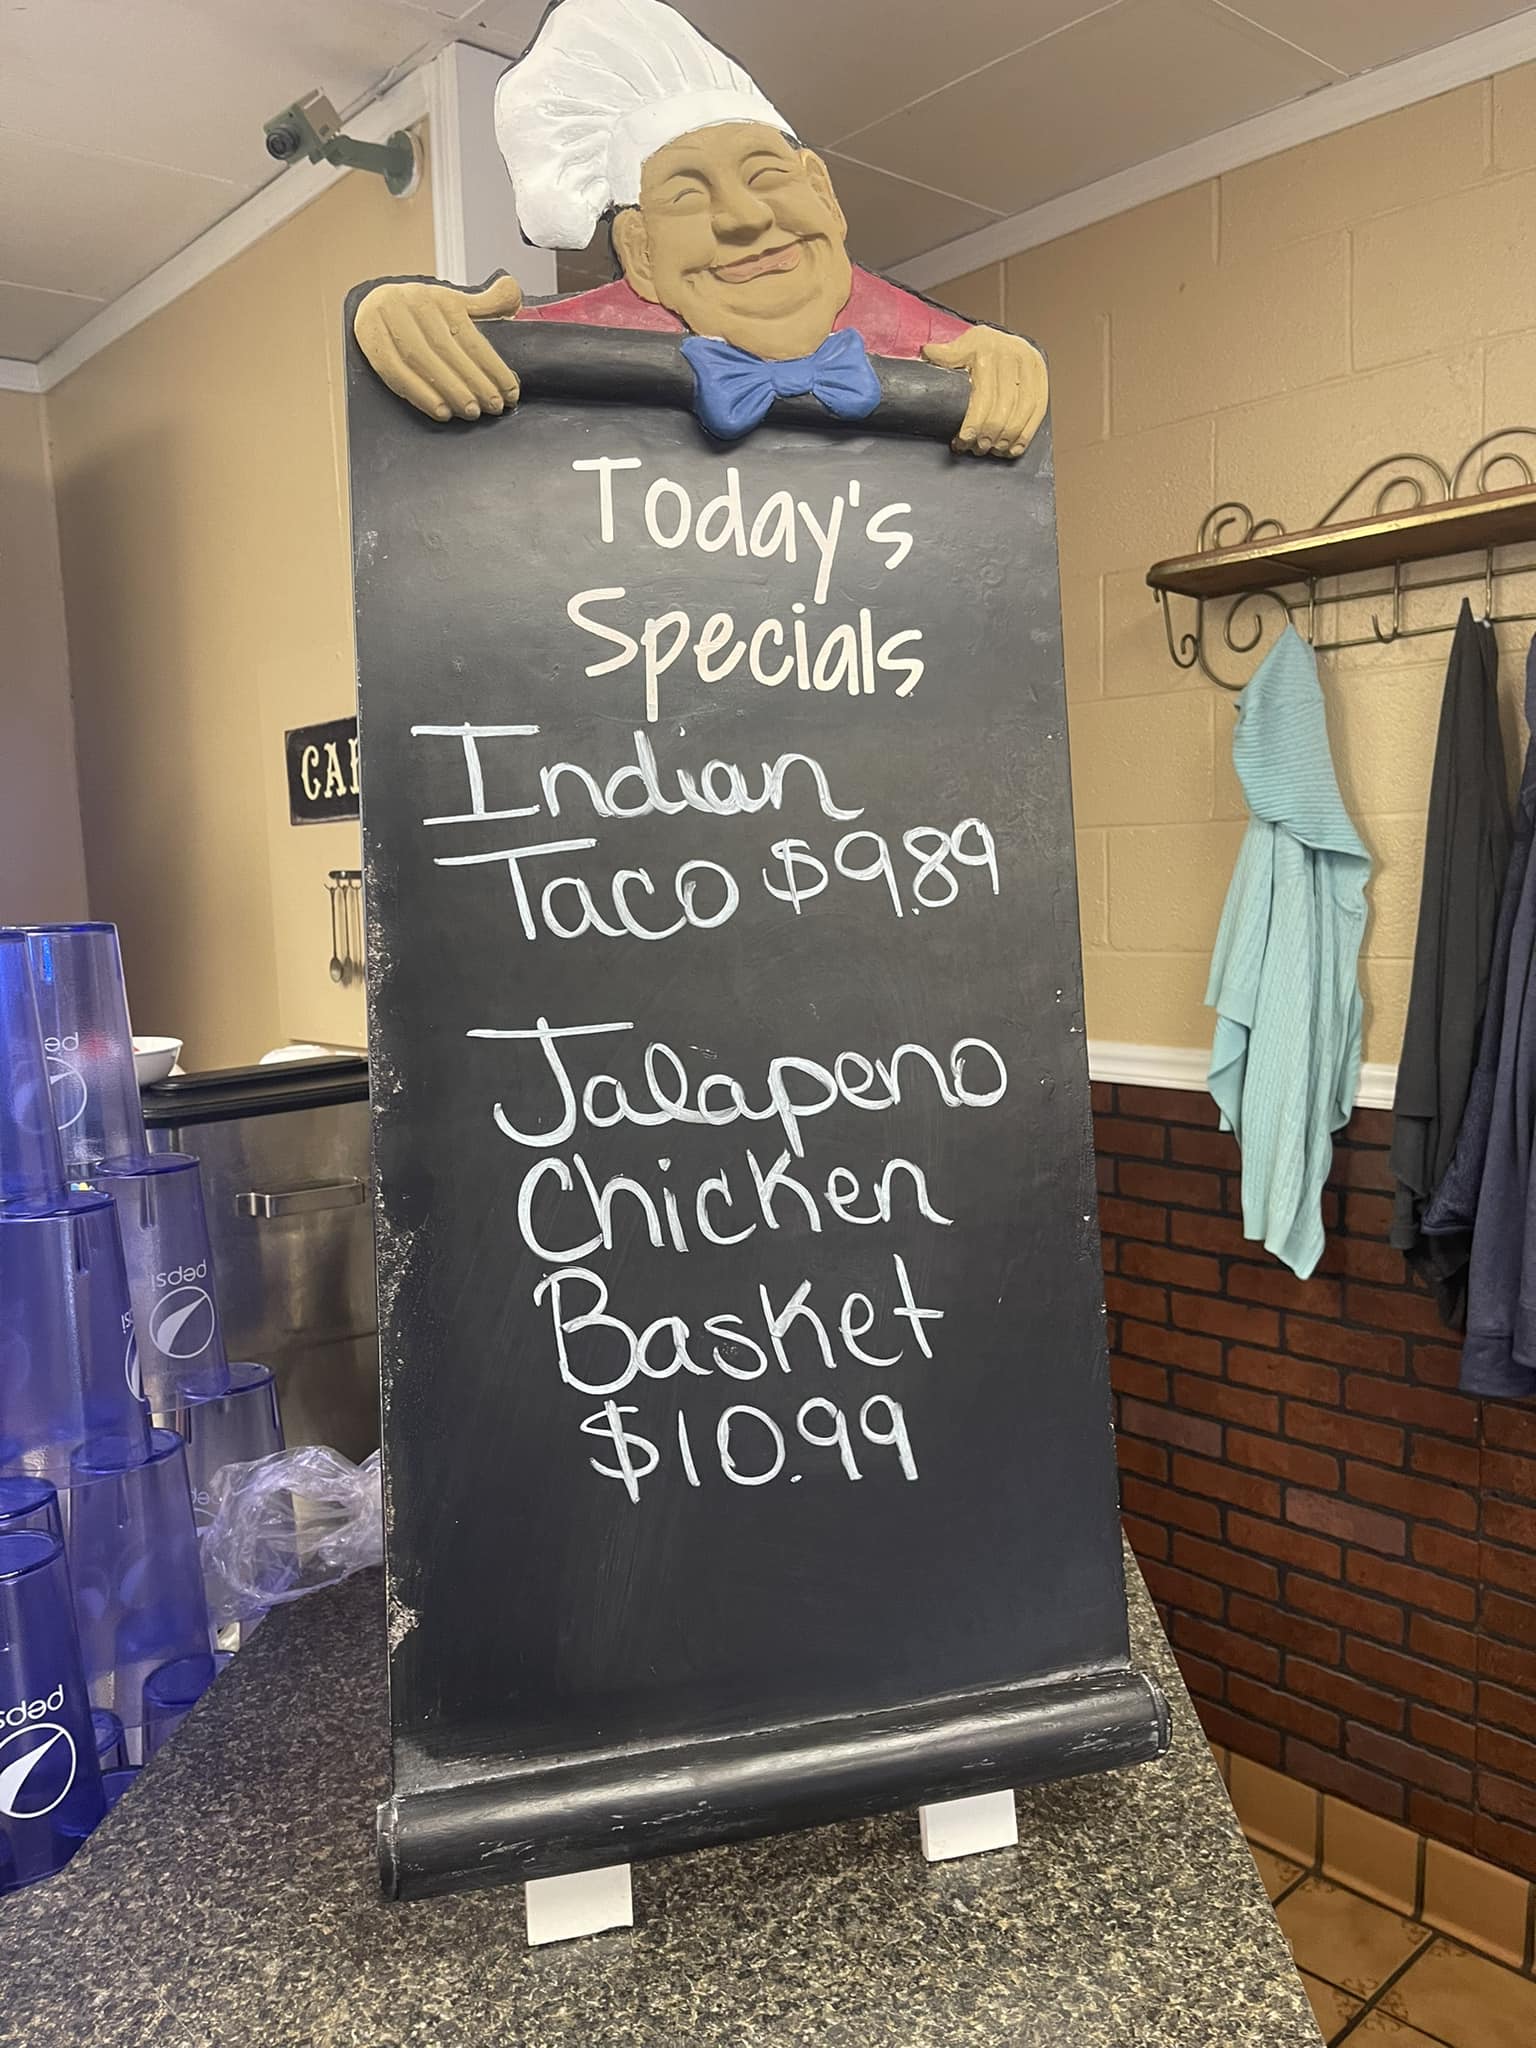 Today's
Specials
Indian
Taco $9.89
Jalapeno
Chicken
Basket
$10.99
pepsi
pepsi
pepsi